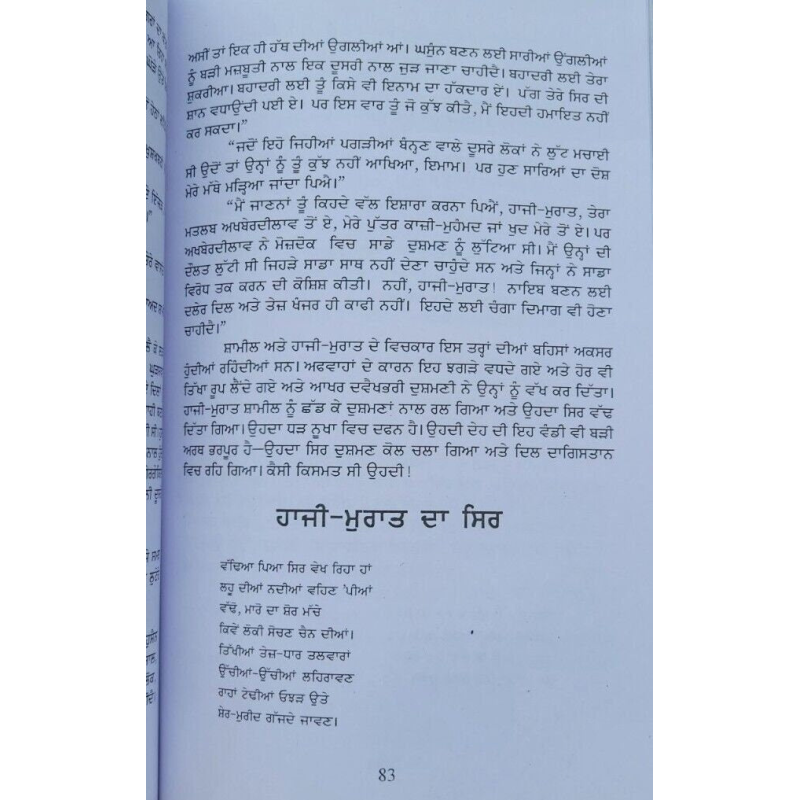 ਅਸੀਂ ਤਾਂ ਇਕ ਹੀ ਹੱਥ ਦੀਆਂ ਉਗਲੀਆਂ ਆਂ। ਘਸੁੰਨ ਬਣਨ ਲਈ ਸਾਰੀਆਂ ਉਂਗਲੀਆਂ
ਨੂੰ ਬੜੀ ਮਜ਼ਬੂਤੀ ਨਾਲ ਇਕ ਦੂਸਰੀ ਨਾਲ ਜੁੜ ਜਾਣਾ ਚਾਹੀਦੈ। ਬਹਾਦਰੀ ਲਈ ਤੇਰਾ
ਸ਼ੁਕਰੀਆ। ਬਹਾਦਰੀ ਲਈ ਤੂੰ ਕਿਸੇ ਵੀ ਇਨਾਮ ਦਾ ਹੱਕਦਾਰ ਏਂ। ਪੱਗ ਤੇਰੇ ਸਿਰ ਦੀ
ਸ਼ਾਨ ਵਧਾਉਂਦੀ ਪਈ ਏ। ਪਰ ਇਸ ਵਾਰ ਤੂੰ ਜੋ ਕੁੱਝ ਕੀਤੈ, ਮੈਂ ਇਹਦੀ ਹਮਾਇਤ ਨਹੀਂ
ਕਰ ਸਕਦਾ।”
“ਜਦੋਂ ਇਹੋ ਜਿਹੀਆਂ ਪਗੜੀਆਂ ਬੰਨ੍ਹਣ ਵਾਲੇ ਦੂਸਰੇ ਲੋਕਾਂ ਨੇ ਲੁੱਟ ਮਚਾਈ
ਸੀ ਉਦੋਂ ਤਾਂ ਉਨ੍ਹਾਂ ਨੂੰ ਤੂੰ ਕੁੱਝ ਨਹੀਂ ਆਖਿਆ, ਇਮਾਮ। ਪਰ ਹੁਣ ਸਾਰਿਆਂ ਦਾ ਦੋਸ਼
ਮੇਰੇ ਮੱਥੇ ਮੜ੍ਹਿਆ ਜਾਂਦਾ ਪਿਐ।”
“ਮੈਂ ਜਾਣਨਾਂ ਤੂੰ ਕਿਹਦੇ ਵੱਲ ਇਸ਼ਾਰਾ ਕਰਨਾ ਪਿਐਂ, ਹਾਜੀ-ਮੁਰਾਤ, ਤੇਰਾ
ਮਤਲਬ ਅਖਬੇਰਦੀਲਾਵ ਤੋਂ ਏ, ਮੇਰੇ ਪੁੱਤਰ ਕਾਜ਼ੀ-ਮੁਹੰਮਦ ਜਾਂ ਖੁਦ ਮੇਰੇ ਤੋਂ ਏ। ਪਰ
ਅਖਬੇਰਦੀਲਾਵ ਨੇ ਮੋਜ਼ਦੋਕ ਵਿਚ ਸਾਡੇ ਦੁਸ਼ਮਣ ਨੂੰ ਲੁੱਟਿਆ ਸੀ। ਮੈਂ ਉਨ੍ਹਾਂ ਦੀ
ਦੌਲਤ ਲੁੱਟੀ ਸੀ ਜਿਹੜੇ ਸਾਡਾ ਸਾਥ ਨਹੀਂ ਦੇਣਾ ਚਾਹੁੰਦੇ ਸਨ ਅਤੇ ਜਿਨ੍ਹਾਂ ਨੇ ਸਾਡਾ
ਵਿਰੋਧ ਤਕ ਕਰਨ ਦੀ ਕੋਸ਼ਿਸ਼ ਕੀਤੀ। ਨਹੀਂ, ਹਾਜੀ-ਮੁਰਾਤ! ਨਾਇਬ ਬਣਨ ਲਈ
ਦਲੇਰ ਦਿਲ ਅਤੇ ਤੇਜ਼ ਖੰਜਰ ਹੀ ਕਾਫੀ ਨਹੀਂ। ਇਹਦੇ ਲਈ ਚੰਗਾ ਦਿਮਾਗ ਵੀ ਹੋਣਾ
ਚਾਹੀਦੈ।”
ਸ਼ਾਮੀਲ ਅਤੇ ਹਾਜੀ-ਮੁਰਾਤ ਦੇ ਵਿਚਕਾਰ ਇਸ ਤਰ੍ਹਾਂ ਦੀਆਂ ਬਹਿਸਾਂ ਅਕਸਰ
ਹੁੰਦੀਆਂ ਰਹਿੰਦੀਆਂ ਸਨ। ਅਫਵਾਹਾਂ ਦੇ ਕਾਰਨ ਇਹ ਝਗੜੇ ਵਧਦੇ ਗਏ ਅਤੇ ਹੋਰ ਵੀ
ਤਿੱਖਾ ਰੂਪ ਲੈਂਦੇ ਗਏ ਅਤੇ ਆਖਰ ਦਵੈਖਭਰੀ ਦੁਸ਼ਮਣੀ ਨੇ ਉਨ੍ਹਾਂ ਨੂੰ ਵੱਖ ਕਰ ਦਿੱਤਾ।
ਹਾਜੀ-ਮੁਰਾਤ ਸ਼ਾਮੀਲ ਨੂੰ ਛੱਡ ਕੇ ਦੁਸ਼ਮਣਾਂ ਨਾਲ ਰਲ ਗਿਆ ਅਤੇ ਉਹਦਾ ਸਿਰ ਵੱਢ
ਦਿੱਤਾ ਗਿਆ। ਉਹਦਾ ਧੜ ਨੂਖਾ ਵਿਚ ਦਫਨ ਹੈ। ਉਹਦੀ ਦੇਹ ਦੀ ਇਹ ਵੰਡੀ ਵੀ ਬੜੀ
ਅਰਥ ਭਰਪੂਰ ਹੈ—ਉਹਦਾ ਸਿਰ ਦੁਸ਼ਮਣ ਕੋਲ ਚਲਾ ਗਿਆ ਅਤੇ ਦਿਲ ਦਾਗਿਸਤਾਨ
ਵਿਚ ਰਹਿ ਗਿਆ। ਕੈਸੀ ਕਿਸਮਤ ਸੀ ਉਹਦੀ!
ਹਾਜੀ-ਮੁਰਾਤ ਦਾ ਸਿਰ
ਵੱਢਿਆ ਪਿਆ ਸਿਰ ਵੇਖ ਰਿਹਾ ਹਾਂ
ਲਹੂ ਦੀਆਂ ਨਦੀਆਂ ਵਹਿਣ 'ਪੀਆਂ
ਵੱਢੋ, ਮਾਰੋ ਦਾ ਸ਼ੋਰ ਮੱਚੇ
ਕਿਵੇਂ ਲੋਕੀ ਸੋਚਣ ਚੈਨ ਦੀਆਂ।
ਤਿੱਖੀਆਂ ਤੇਜ਼-ਧਾਰ ਤਲਵਾਰਾਂ
ਉੱਚੀਆਂ-ਉੱਚੀਆਂ ਲਹਿਰਾਵਣ
ਰਾਹਾਂ ਟੇਢੀਆਂ ਓਝੜ ਉਤੇ
ਸ਼ੇਰ-ਮੁਰੀਦ ਗੱਜਦੇ ਜਾਵਣ।
83